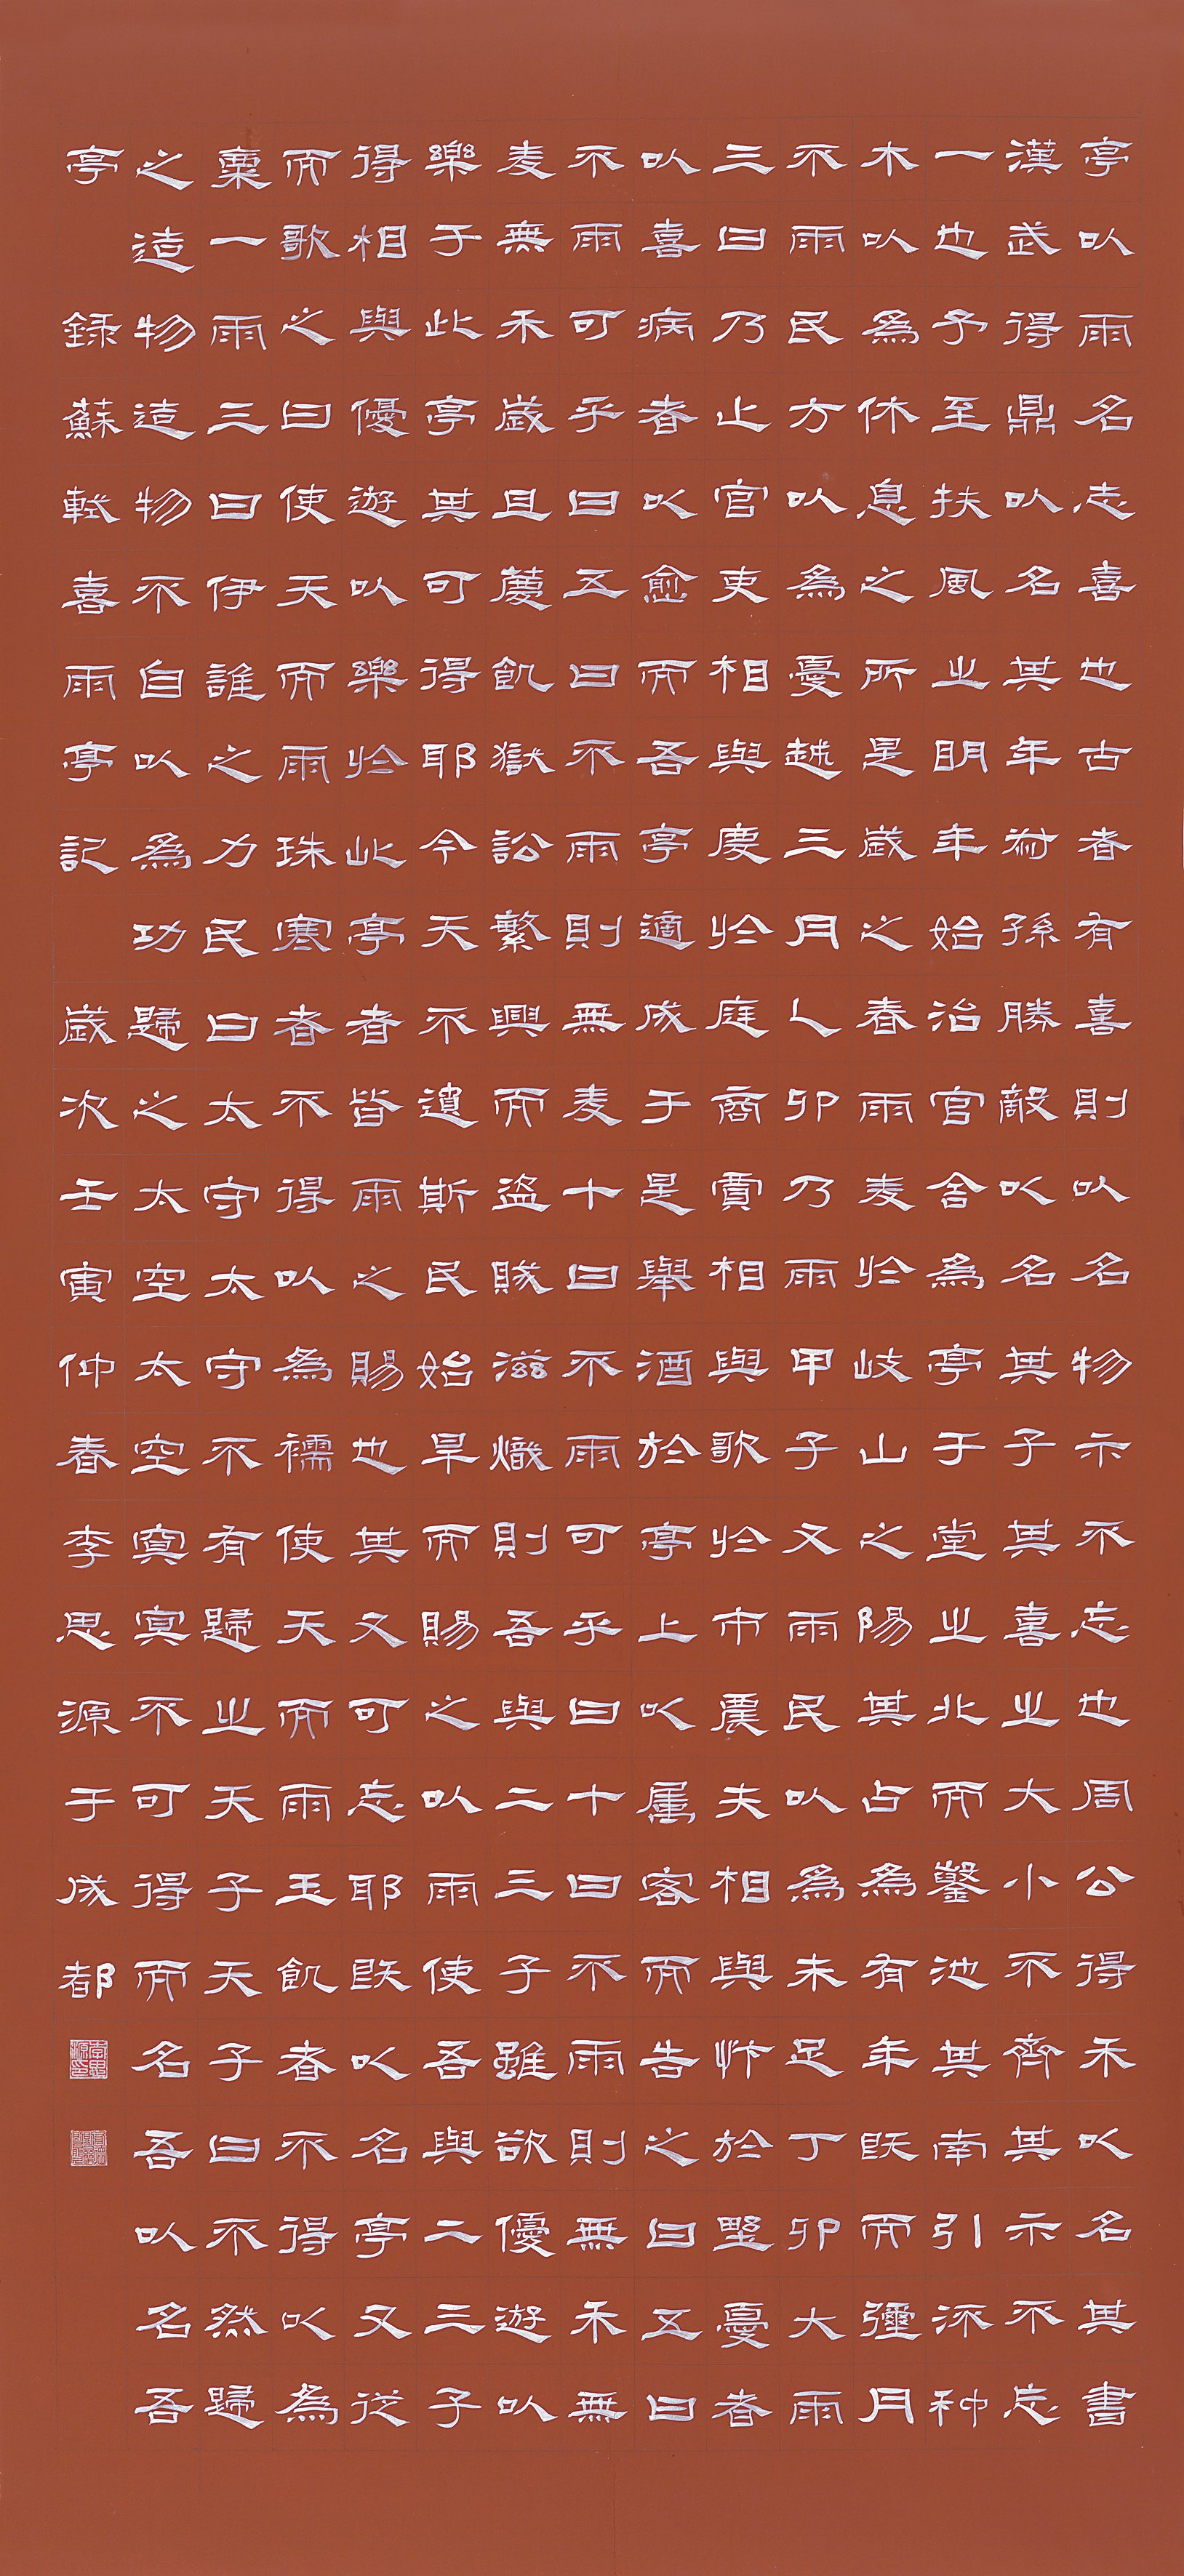 亭以雨名志喜也古者有喜則以名物示不忘也周公得禾以名其書
漢武得鼎以名其年叔孫勝敵以名其子其喜之大小不齊其示不忘
一也予至扶風之明年始治官舍為亭于堂之北而鑿池其南引流种
木以為休息之所是歲之春雨麦於岐山之陽其占為有年既而彌月
不雨民方以為憂越三月乙卯乃雨甲子又雨民以為未足丁卯大雨
三日乃止官吏相與慶於庭商賈相與歌於市農夫相與忭於野憂者
以喜病者以愈而吾亭適成于是舉酒於亭上以属客而告之曰五日
不雨可乎曰五日不雨則無麦十日不雨可乎曰十日不雨則無禾無
麦無禾歲且薦飢獄訟繁興而盜賊滋熾則吾與二三子雖欲優遊以
樂于此亭其可得耶今天不遺斯民始旱而賜之以雨使吾與二三子
得相與優遊以樂於此亭者皆雨之賜也其又可忘耶既以名亭又從
而歌之曰使天而雨珠寒者不得以為襦使天而雨玉飢者不得以為
粟一雨三日伊誰之力民曰太守太守不有歸之天子天子曰不然歸
之造物造物不自以為功歸之太空太空冥冥不可得而名吾以名吾
亭 錄蘇軾喜雨亭記 歲次壬寅仲春李思源于成都
李思源印